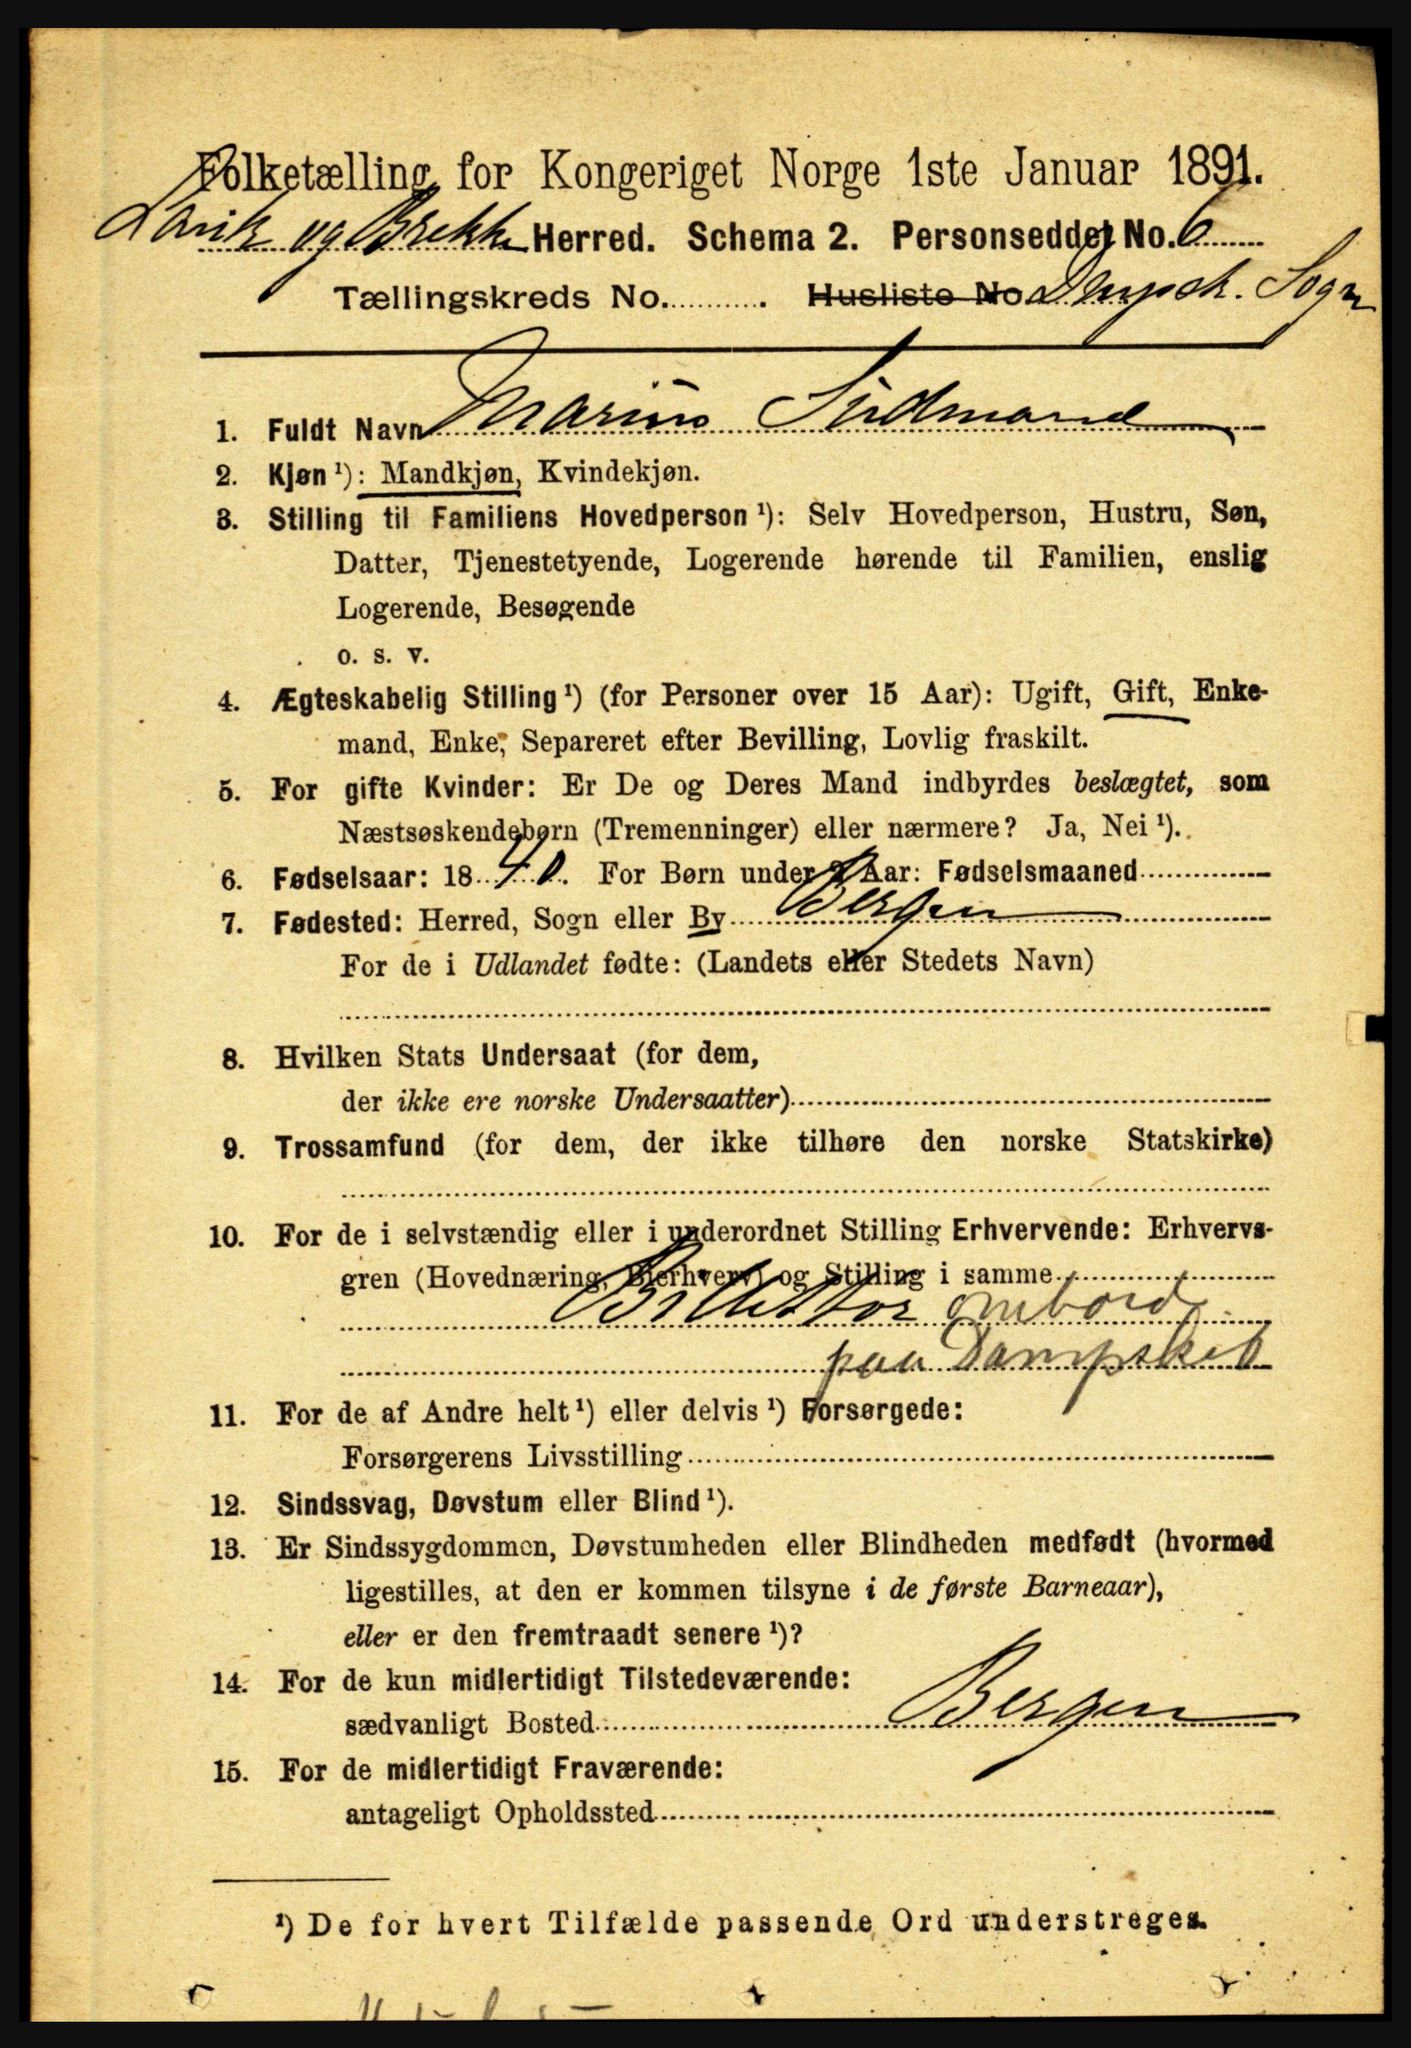 Folketælling for Kongeriget Norge 1ste Januar 1891.
Lavik og Brekke Herred. Schema 2. Personseddel No. 6
Tællingskreds No. . Husliste No Dmpsk. Sogn
1. Fuldt Navn Marius
2. Kjøn ¹): Mandkjøn, Kvindekjøn.
3. Stilling til Familiens Hovedperson ¹): Selv Hovedperson, Hustru, Søn,
Datter, Tjenestetyende, Logerende hørende til Familien, enslig
Logerende, Besøgende
o. s. v.
4. Ægteskabelig Stilling ¹) (for Personer over 15 Aar): Ugift, Gift, Enke-
mand, Enke, Separeret efter Bevilling, Lovlig fraskilt.
5. For gifte Kvinder: Er De og Deres Mand indbyrdes beslægtet, som
Næstsøskendebørn (Tremenninger) eller nærmere? Ja, Nei ¹).
6. Fødselsaar: 18 40. For Børn under 2 Aar: Fødselsmaaned
7. Fødested: Herred, Sogn eller By Bergen
For de i Udlandet fødte: (Landets eller Stedets Navn)
8. Hvilken Stats Undersaat (for dem,
der ikke ere norske Undersaatter)
9. Trossamfund (for dem, der ikke tilhøre den norske Statskirke)
10. For de i selvstændig eller i underordnet Stilling Erhvervende: Erhvervs-
gren (Hovednæring, Bierhverv) og Stilling i samme
Billettør ombord
paa Dampskib
11. For de af Andre helt ¹) eller delvis ¹) Forsørgede:
Forsørgerens Livsstilling
12. Sindssvag, Døvstum eller Blind ¹).
13. Er Sindssygdommen, Døvstumheden eller Blindheden medfødt (hvormed
ligestilles, at den er kommen tilsyne i de første Barneaar),
eller er den fremtraadt senere ¹)?
14. For de kun midlertidigt Tilstedeværende:
sædvanligt Bosted Bergen
15. For de midlertidigt Fraværende:
antageligt Opholdssted
¹) De for hvert Tilfælde passende Ord understreges.